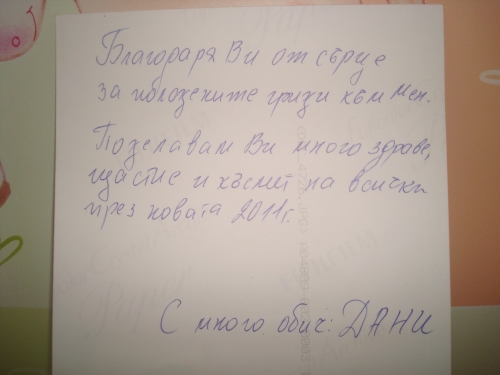 Благодаря Ви от сърце
за положените грижи към мен.
Пожелавам Ви много здраве,
щастие и късмет на всички
през новата 2011г.
С много обич: ДАНИ